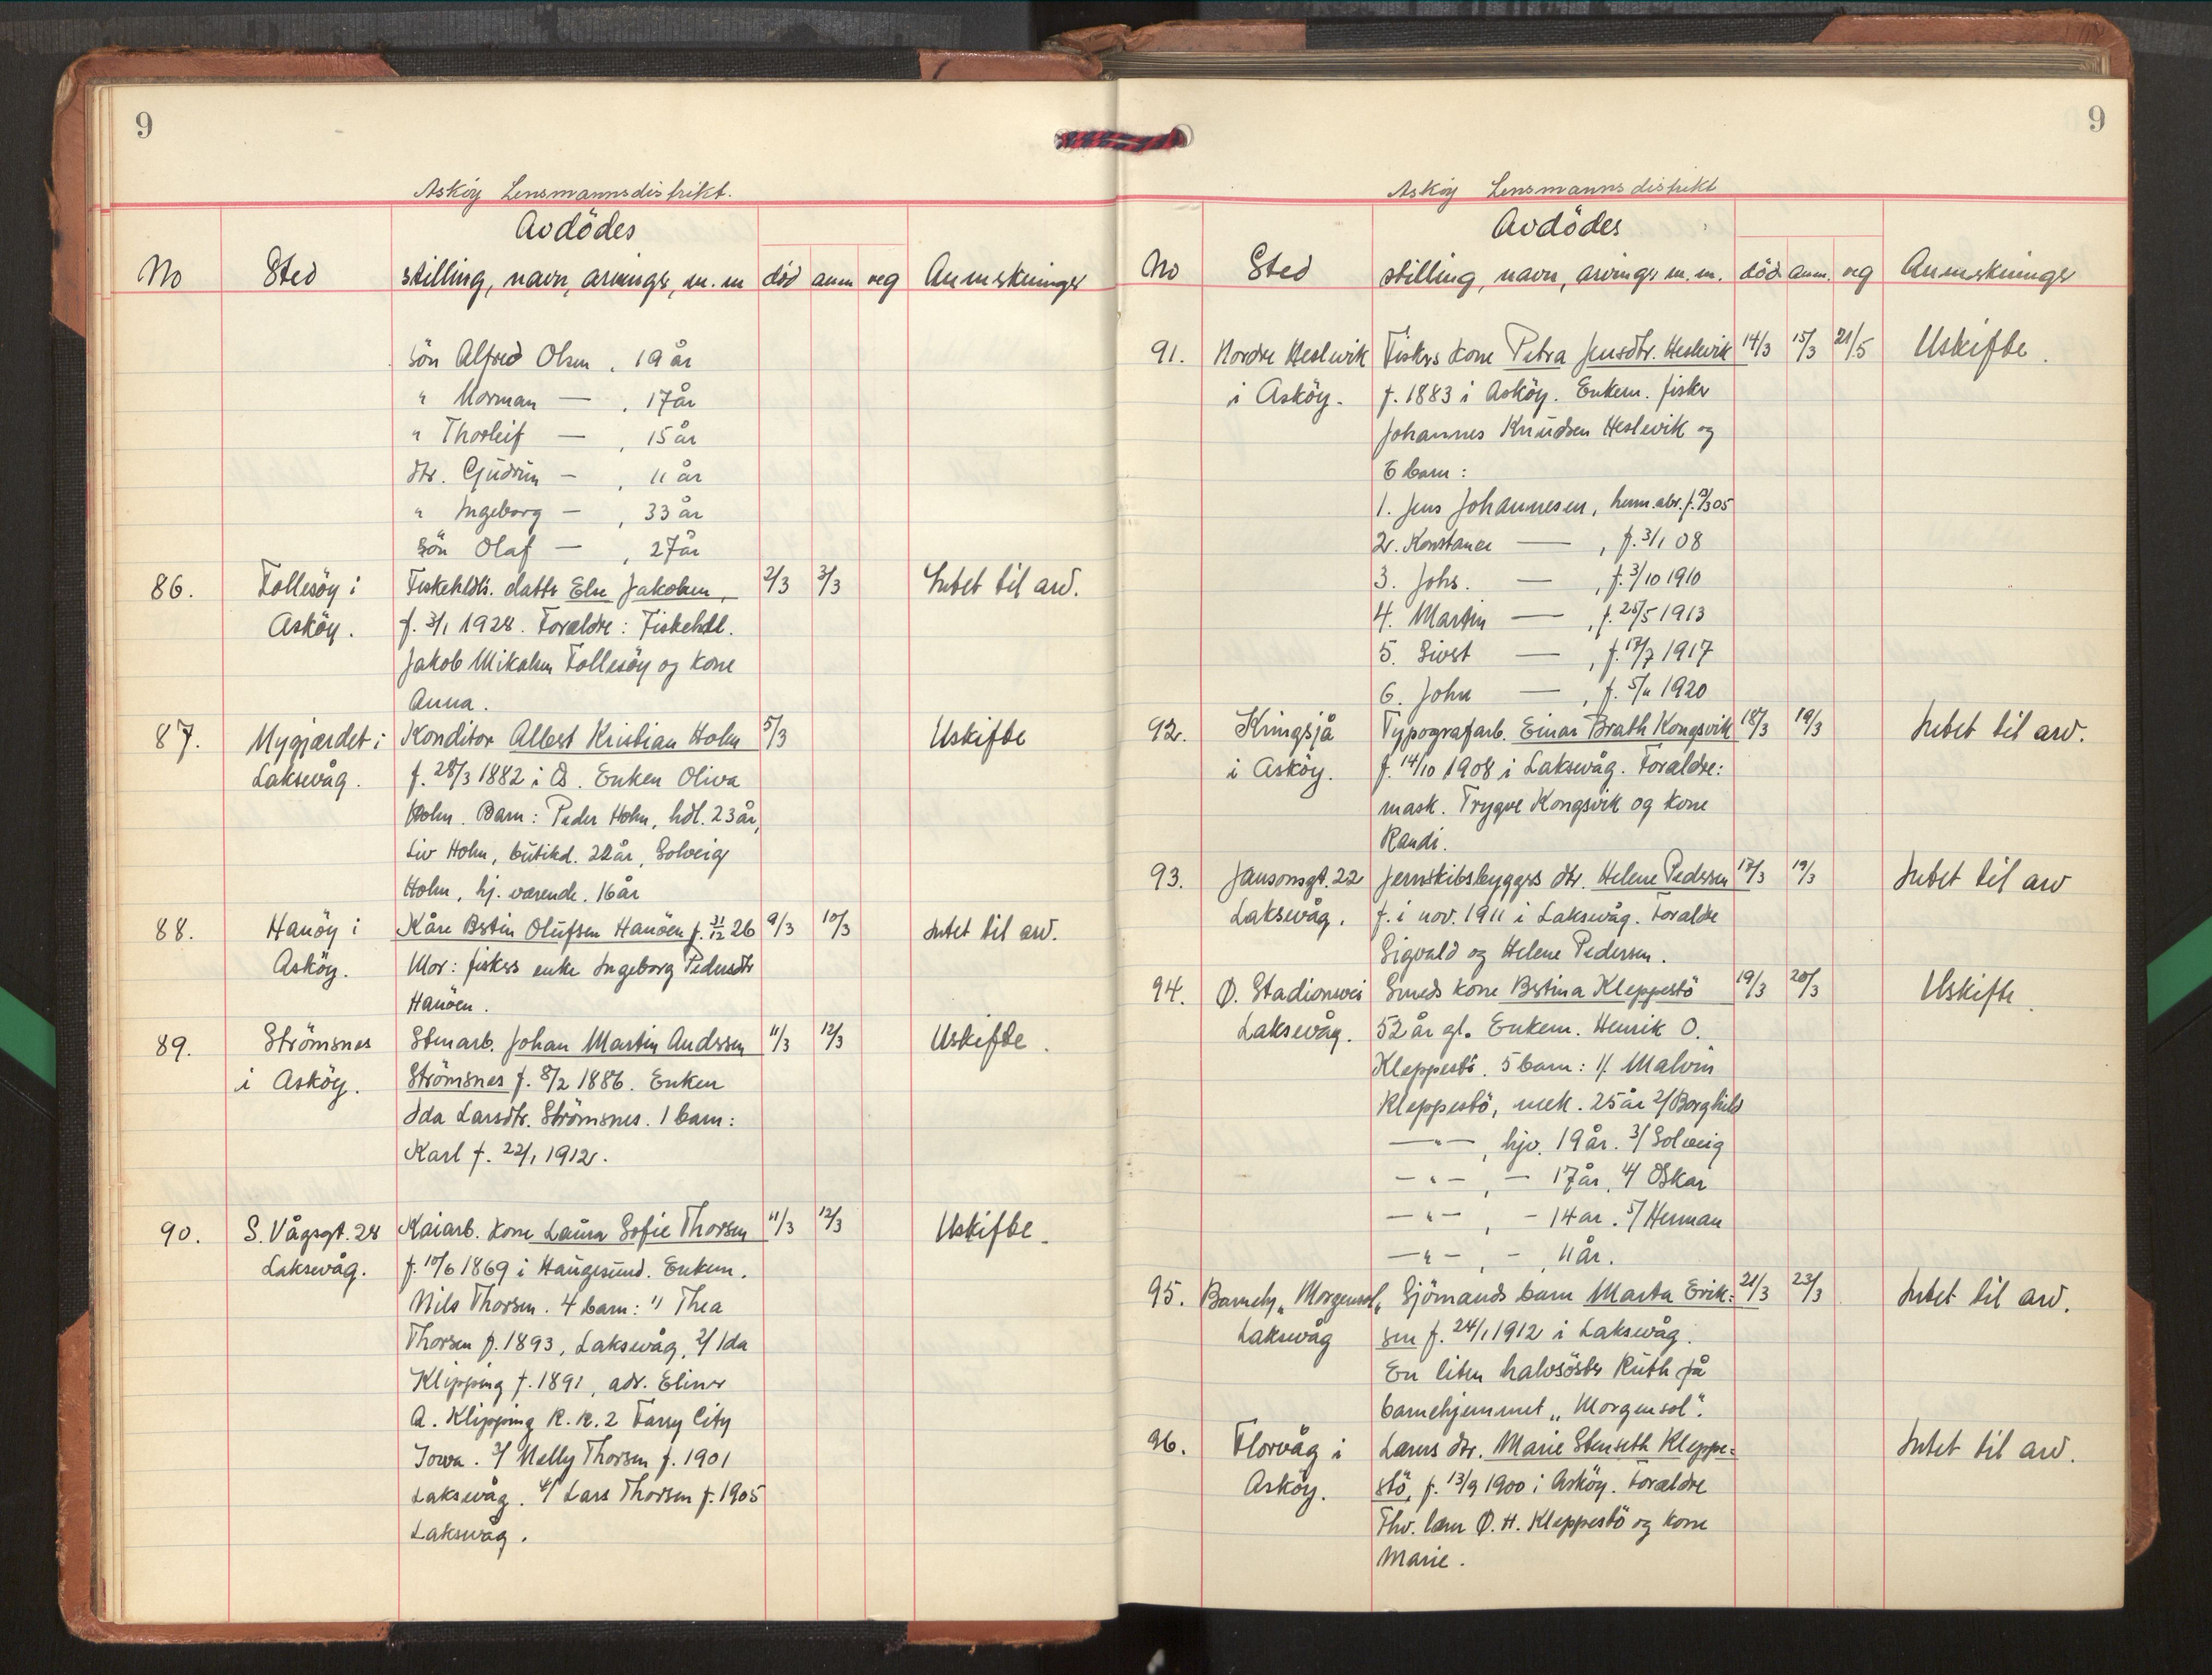 9
Askøy Lensmannsdistrikt.
Avdödes
No Sted stilling, navn, arvinger, m. m död anm reg Anmerkninger
Sön Alfred Olsen, 19 år
" Norman — , 17 år
" Thorleif — , 15 år
dtr. Gudrun — , 11 år
" Ingeborg — , 33 år
Sön Olaf — , 27 år
86. Follesöy i Fiskehdls. datter Else Jakobsen, 2/3 3/3 Intet til arv.
Asköy. f. 3/1 1928. Forældre: Fiskehdl.
Jakob Mikalsen Follesöy og kone
Anna.
87. Nygjærdet i Konditor Albert Kristian Holm 5/3 Uskifte
Laksevåg. f. 28/3 1882 i Os. Enken Oliva
Holm. Barn: Peder Holm, hdl. 23 år,
Liv Holm, butikd. 22 år, Solveig
Holm, hj. værende. 16 år
88. Hanöy i Kåre Bertin Olufsen Hanöen f. 31/12 26 9/3 10/3 Intet til arv.
Asköy. Mor: fiskers enke Ingeborg Pedersdtr
Hanöen.
89. Strömsnes Stenarb. Johan Martin Andersen 11/3 12/3 Uskifte.
i Asköy. Strömsnes f. 8/2 1886. Enken
Ida Larsdtr. Strömsnes. 1 barn:
Karl f. 22/1 1912.
90. S. Vågsgt. 28 Kaiarb. kone Laura Sofie Thorsen 11/3 12/3 Uskifte.
Laksevåg. f. 10/6 1869 i Haugesund. Enkem.
Nils Thorsen. 4 barn: 1/ Thea
Thorsen f. 1893, Laksevåg, 2/ Ida
Klipping f. 1891, adr. Eliner
A. Klipping R. R. 2 Farry City
Iowa. 3/ Nelly Thorsen f. 1901
Laksevåg. 4/ Lars Thorsen f. 1905
Laksevåg.
9
Askøy Lensmannsdistrikt
Avdödes
No Sted stilling, navn, arvinger m. m. död anm. reg Anmerkninger
91. Nordre Heslevik Fiskers kone Petra Jensdtr. Heslevik 14/3 15/3 21/5 Uskifte.
i Asköy. f. 1883 i Asköy. Enkem. fisker
Johannes Knudsen Heslevik og
6 barn:
1. Jens Johannesen, herm. abr. f. 9/3 05
2. Konstance — , f. 3/1 08
3. Johs. — , f. 3/10 1910
4. Martin — , f. 25/5 1913
5. Sivert — , f. 17/7 1917
6. John — , f. 5/11 1920
92. Kringsjå Typografarb. Einar Brath Kongsvik 18/3 19/3 Intet til arv.
i Asköy. f. 14/10 1908 i Laksevåg. Forældre:
mask. Trygve Kongsvik og kone
Randi.
93. Jansonsgt. 22 Jernskibsbyggers dtr. Helene Pedersen 17/3 19/3 Intet til arv
Laksevåg. f. i nov. 1911 i Laksevåg. Forældre
Sigvald og Helene Pedersen.
94. Ø. Stadionvei Smeds kone Bertina Kleppestö 19/3 20/3 Uskifte.
Laksevåg. 52 år gl. Enkem. Henrik O.
Kleppestö. 5 barn: 1/ Malvin
Kleppestö, mek. 25 år 2/ Borghild
—"—, hjv. 19 år. 3/ Solveig
—"—, — 17 år, 4/ Oskar
—"—, - 14 år. 5/ Herman
—"—, - , 11 år.
95. Barnehj. "Morgensol", Sjömands barn Marta Erik= 21/3 23/3 Intet til arv.
Laksevåg sen f. 24/1 1912 i Laksevåg.
En liten halvsöster Ruth på
barnehjemmet „Morgensol".
96. Florvåg i Lærers dtr. Marie Stenseth Kleppe= Intet til arv.
Asköy. stö, f. 13/9 1900 i Asköy. Forældre
Fhv. lærer O. H. Kleppestö og kone
Marie.